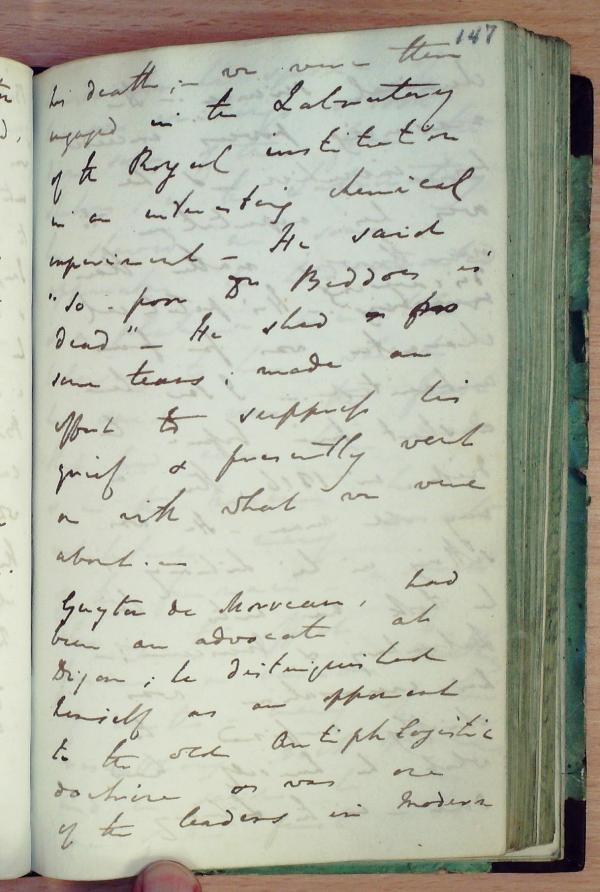 147
his death ;— we were then
engaged in the Laboratory
of the Royal institution
in an interesting chemical
experiment — He said
"so - poor Dr Beddoes is
dead" — He shed
some tears ; made an
effort to suppress his
grief & presently went
on with what we were
about. —
Guyton de Morveau, had
been an advocate at
Dijon ; he distinguished
himself as an opponent
to the old antiphlogistic
doctrine & was one
of the leaders in modern